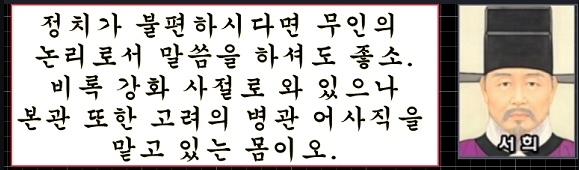 정치가 불편하시다면 무인의
논리로서 말씀을 하셔도 좋소.
비록 강화 사절로 와 있으나
본관 또한 고려의 병관 어사직을
맡고 있는 몸이오.
서희